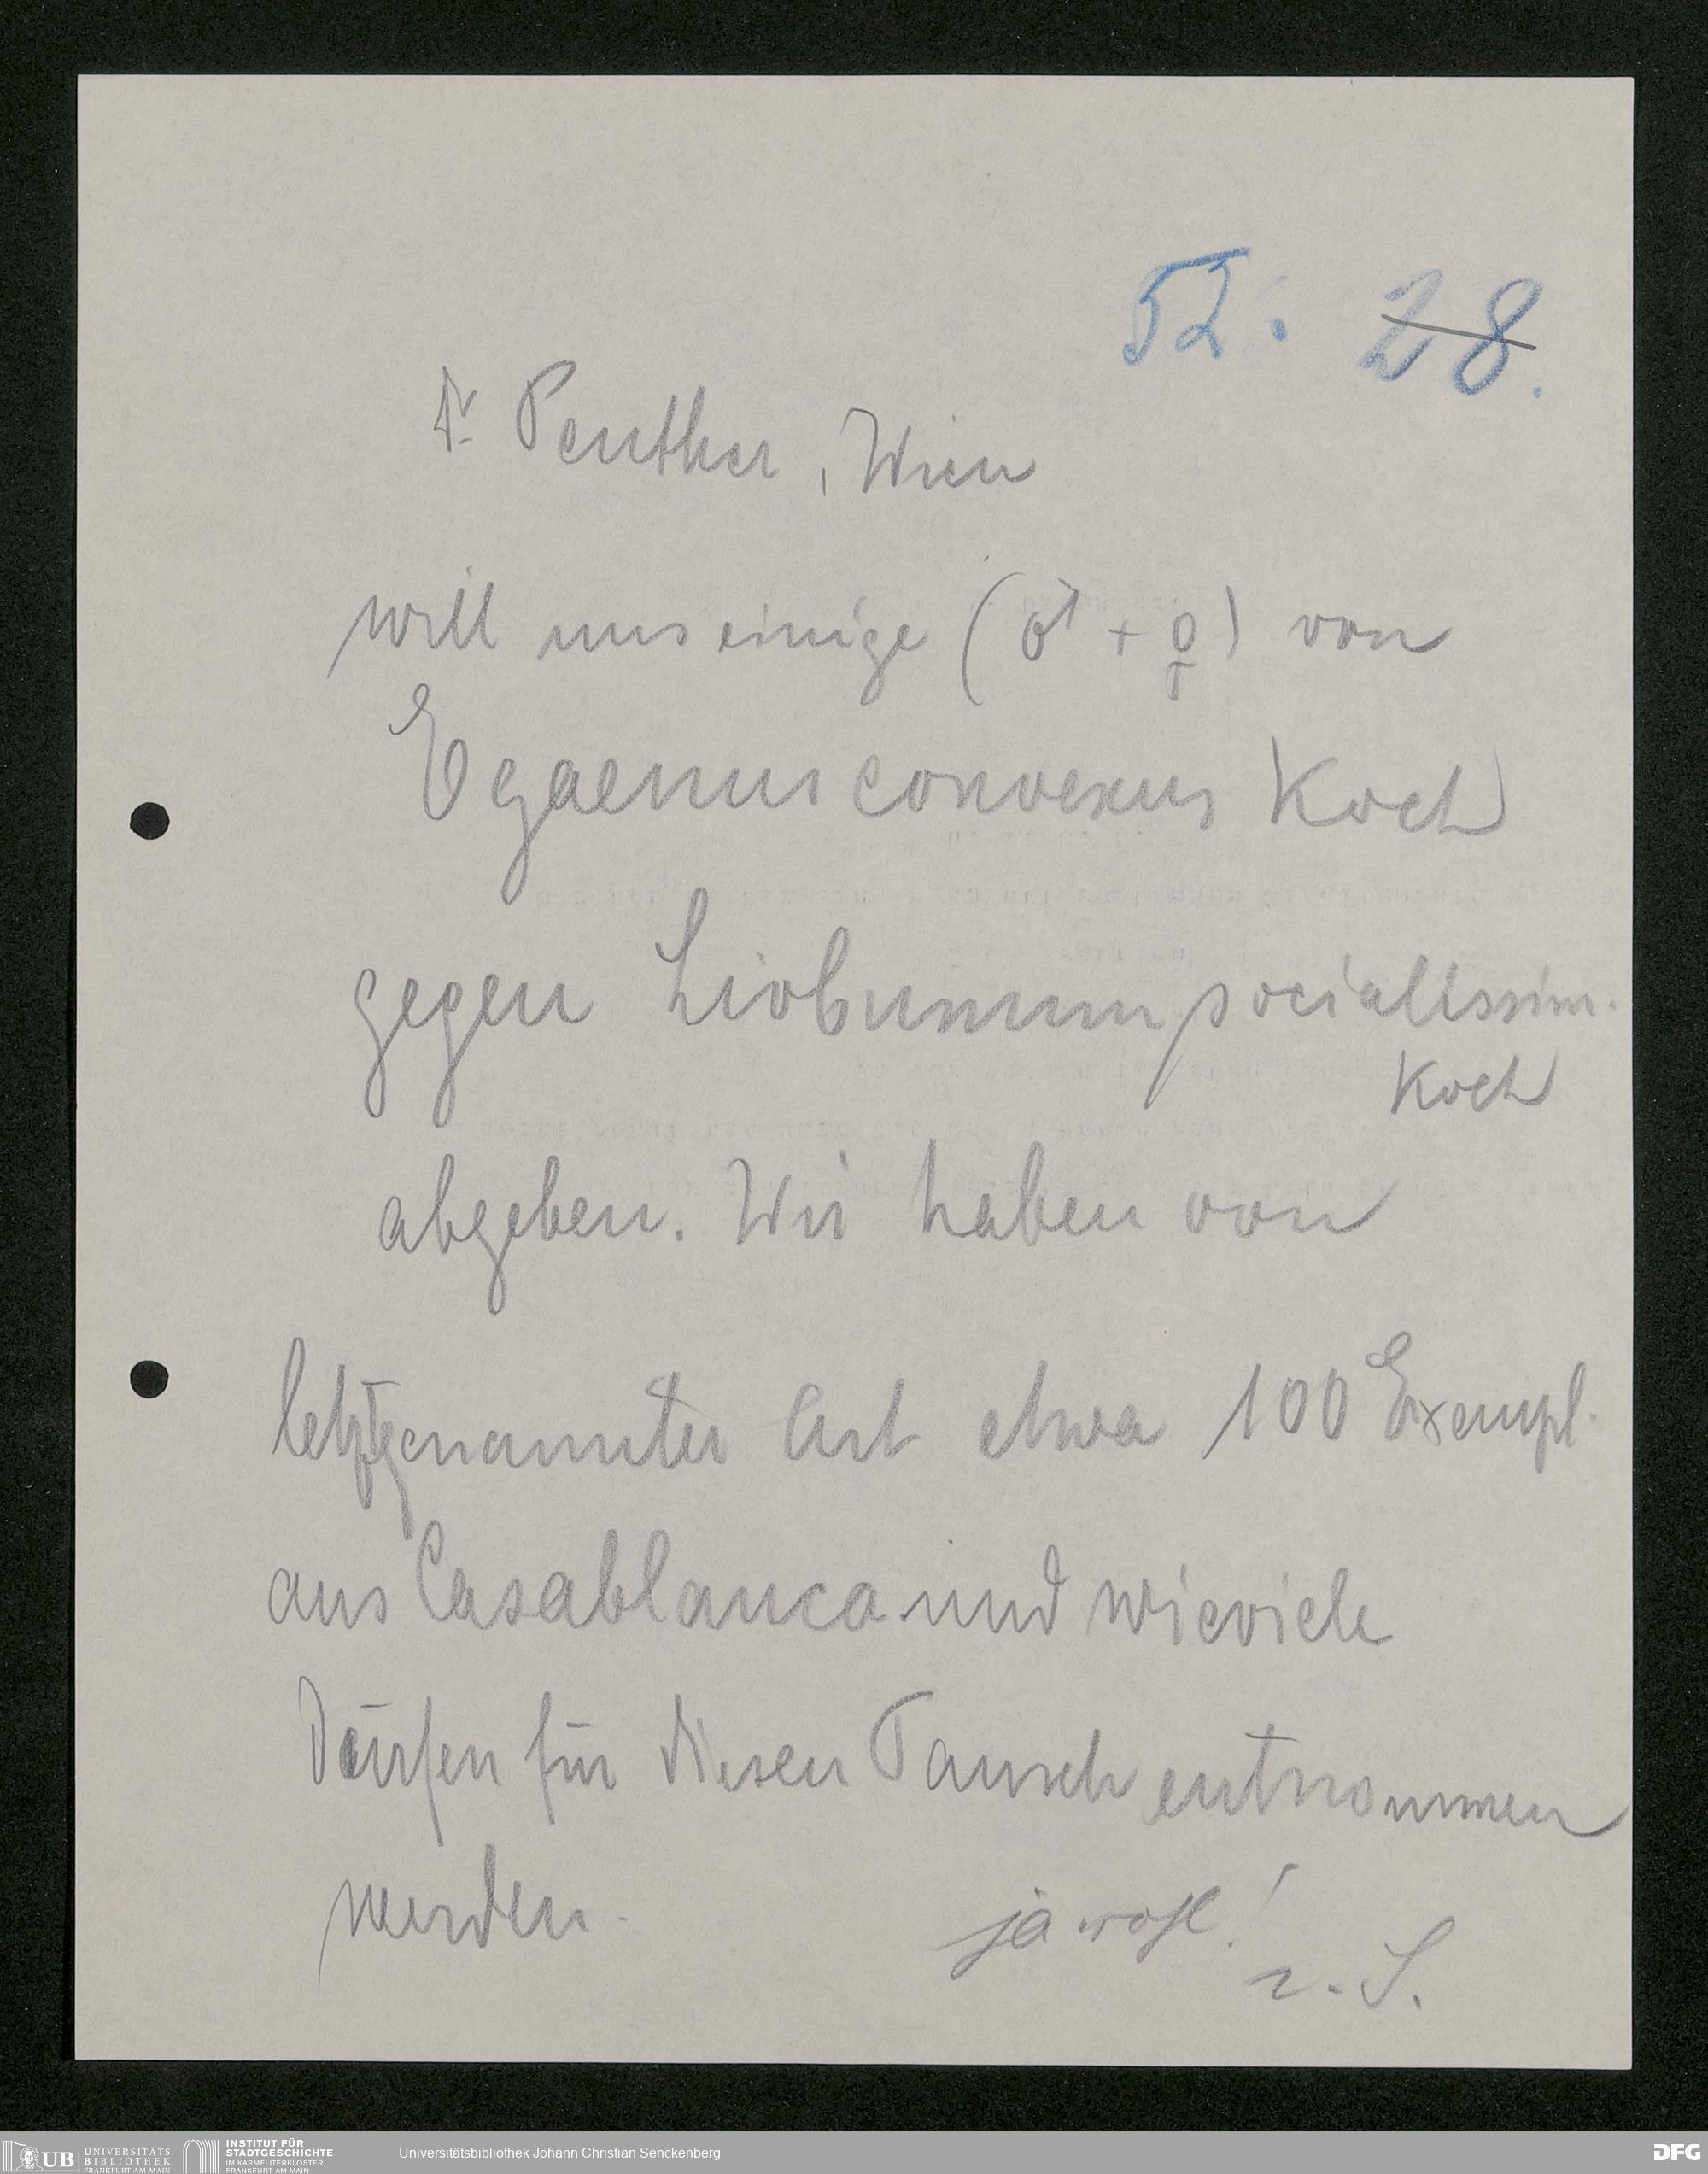 52. 28.
Dr. Penther, Wien
will uns einige (♂ + ♀) von
Egaenus convexus Koch
gegen Liobunum socialissim.
Koch
abgeben. Wir haben von
letztgenannter Art etwa 100 Exempl.
aus Casablanca und wieviele
dürfen für diesen Tausch entnommen
werden.
jawohl!
z. S.
UB UNIVERSITÄTS BIBLIOTHEK FRANKFURT AM MAIN
INSTITUT FÜR STADTGESCHICHTE IM KARMELITERKLOSTER FRANKFURT AM MAIN
Universitätsbibliothek Johann Christian Senckenberg
DFG